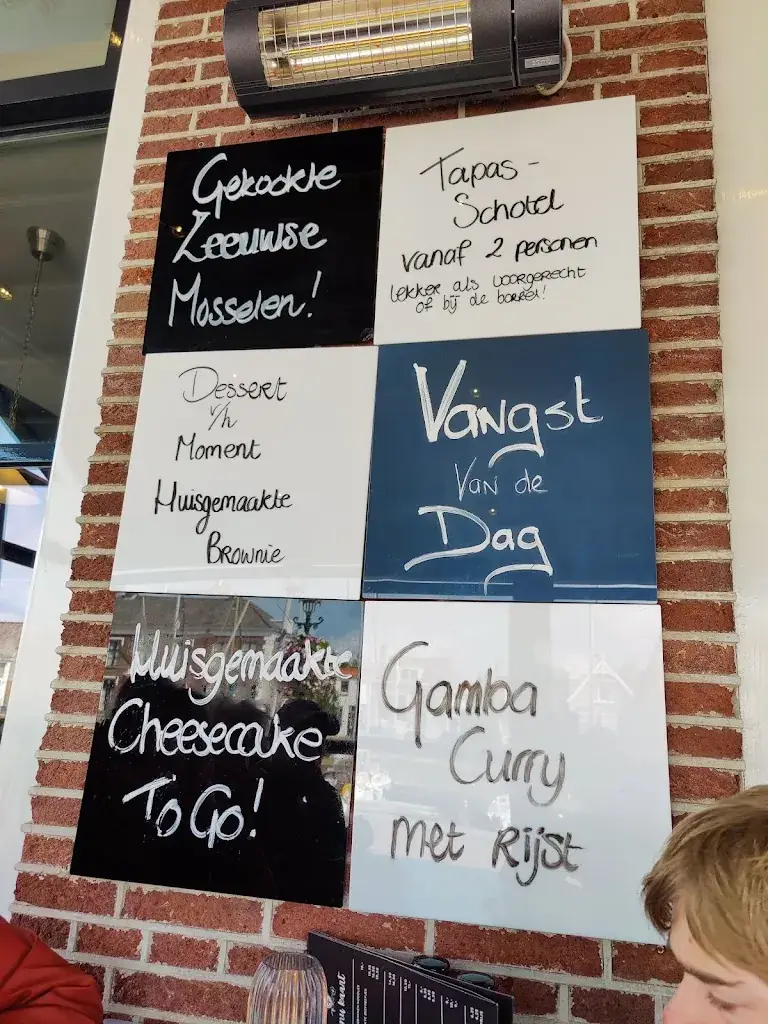 Gekookte
Zeeuwse
Mosselen!
Tapas-
Schotel
vanaf 2 personen
lekker als voorgerecht
of bij de borrel!
Dessert
v/h
Moment
Huisgemaakte
Brownie
Vangst
Van de
Dag
Huisgemaakte
Cheesecake
To Go!
Gamba
Curry
met Rijst